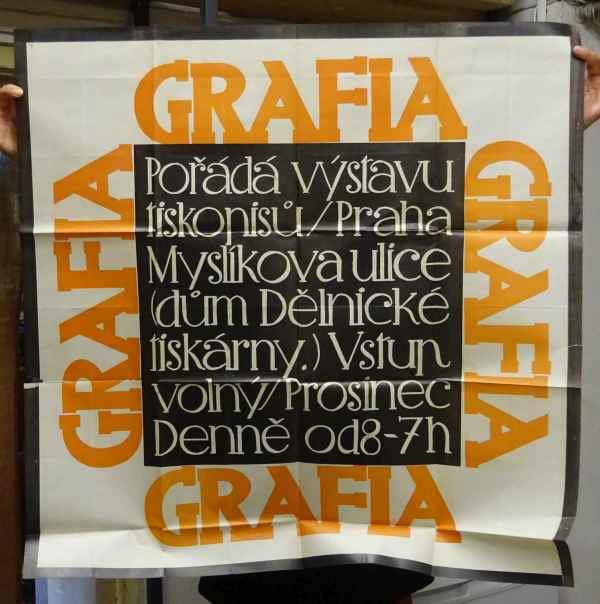 GRAFIA
GRAFIA
GRAFIA
Pořádá výstavu
tiskopisů/Praha
Myslíkova ulice
(dům Dělnické
tiskárny.) Vstup
volný/Prosinec
Denně od8-7h
GRAFIA